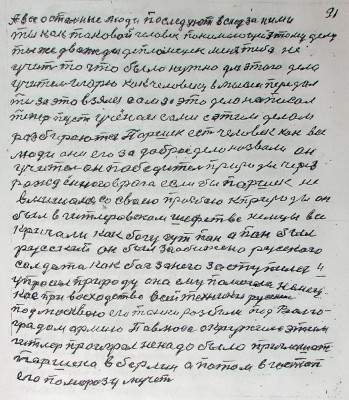 91
А все остальные люди последуют вслед за ними
ты как таковой человек понимающий этому делу
ты же дважды дипломщик мы тебя не
учит то что было нужно для этого дела
учителем как человеку в мысли передал
ты за это взялся и это дело написал
теперь пусть ученые сами с этим делом
разбираются Паршек есть человек как все
люди они его за доброе дело назвали он
учитель он победитель природы через
врага если бы Паршек не
вмешался со своею просьбою к природы он
был в гитлеровском немцы все
кричали как богу гут пан а пан был
русский он был за обижено русского
солдата как бог за него заступился и
упросил природу она ему помогла немец
как при восходстве всей техники русские
под Москвою его танки разбили под Волго-
градом армию Павлюса окружили этим
гитлер проиграл не надо было приглашать
паршека в берлин а потом в гестапо
его по морозу мучет